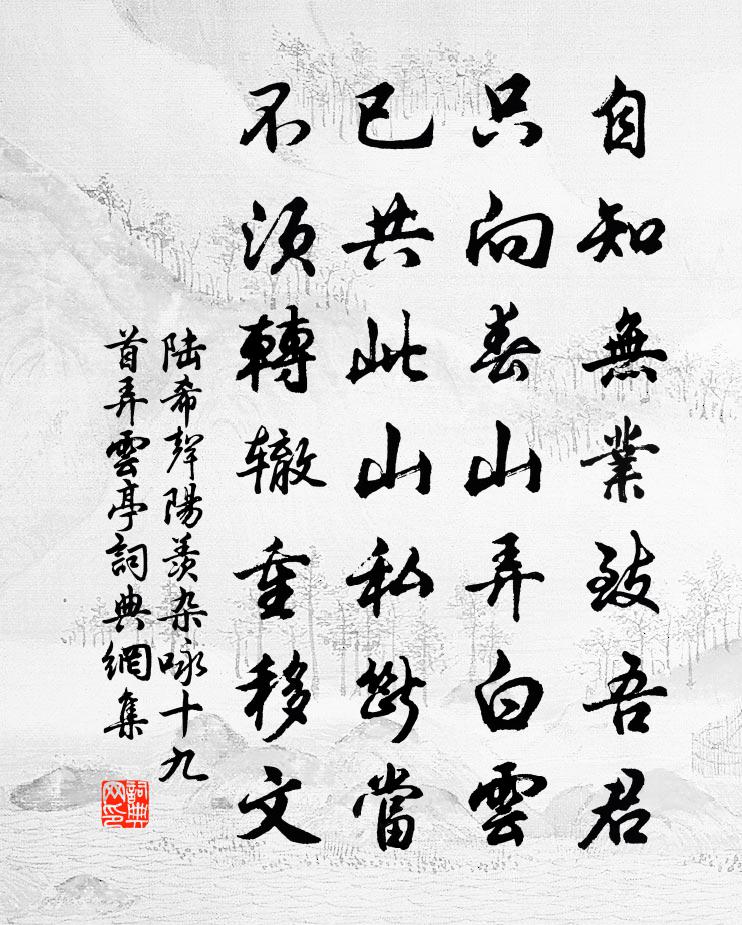 自知無業致吾君
只向春山弄白雲
已共此山私斷當
不須轉轍重移文
陸希聲陽羨杂咏十九
首弄雲亭詞典網集
詞典
网印